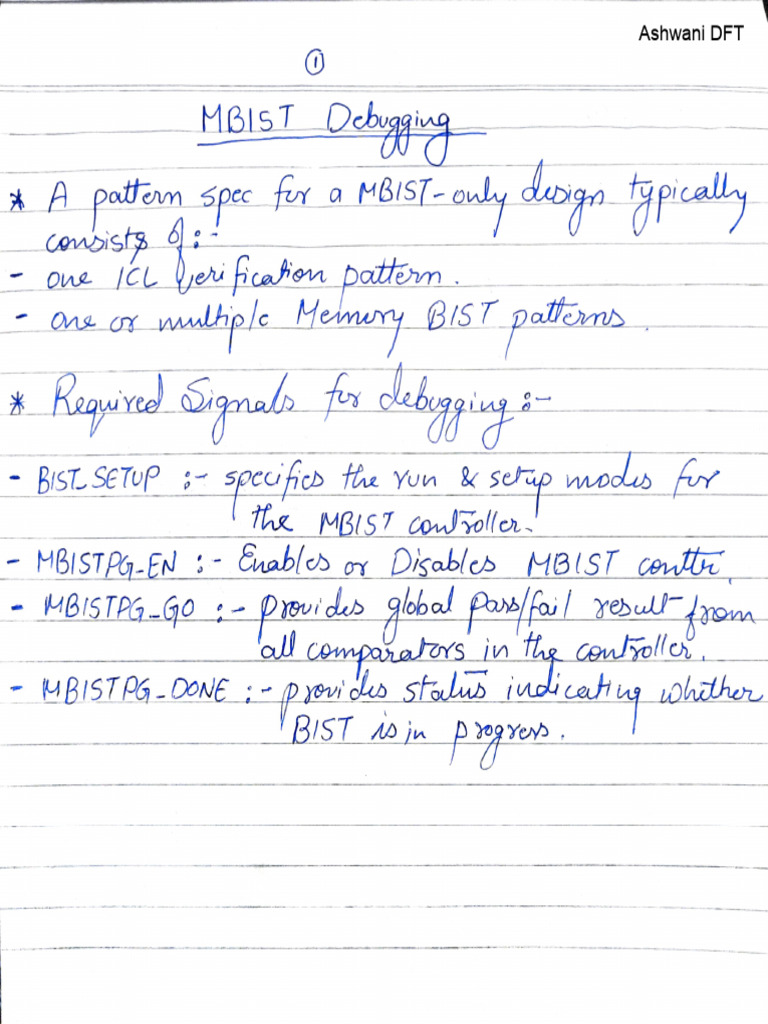 Ashwani DFT
①
MBIST Debugging
* A pattern spec for a MBIST-only design typically
consists of:-
- one ICL Verification pattern.
- one or multiple Memory BIST patterns.
* Required Signals for debugging:-
- BIST_SETUP :- specifies the run & setup modes for
the MBIST controller.
- MBISTPG-EN :- Enables or Disables MBIST conttr.
- MBISTPG_GO :- provides global pass/fail result from
all comparators in the controller.
- MBISTPG-DONE :- provides status indicating whether
BIST is in progress.